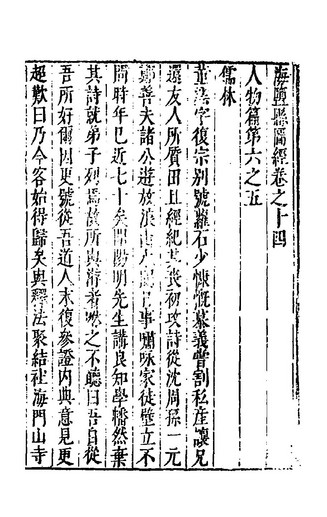 海鹽縣圖經卷之十四
人物篇第六之五
儒林
董澐字復宗别號蘿石少慷慨慕義嘗割私産讓兄
還友人所質田且經紀其喪初攻詩從沈周孫一元
鄭善夫諸公遊放浪山水間日事嘯咏家徒壁立不
問時年已近七十矣聞陽明先生講良知學幡然棄
其詩就弟子列焉故所與游者咻之不聽曰吾自從
吾所好爾因更號從吾道人末復參證内典意見更
超歎曰乃今客始得歸矣與釋法聚結社海門山寺